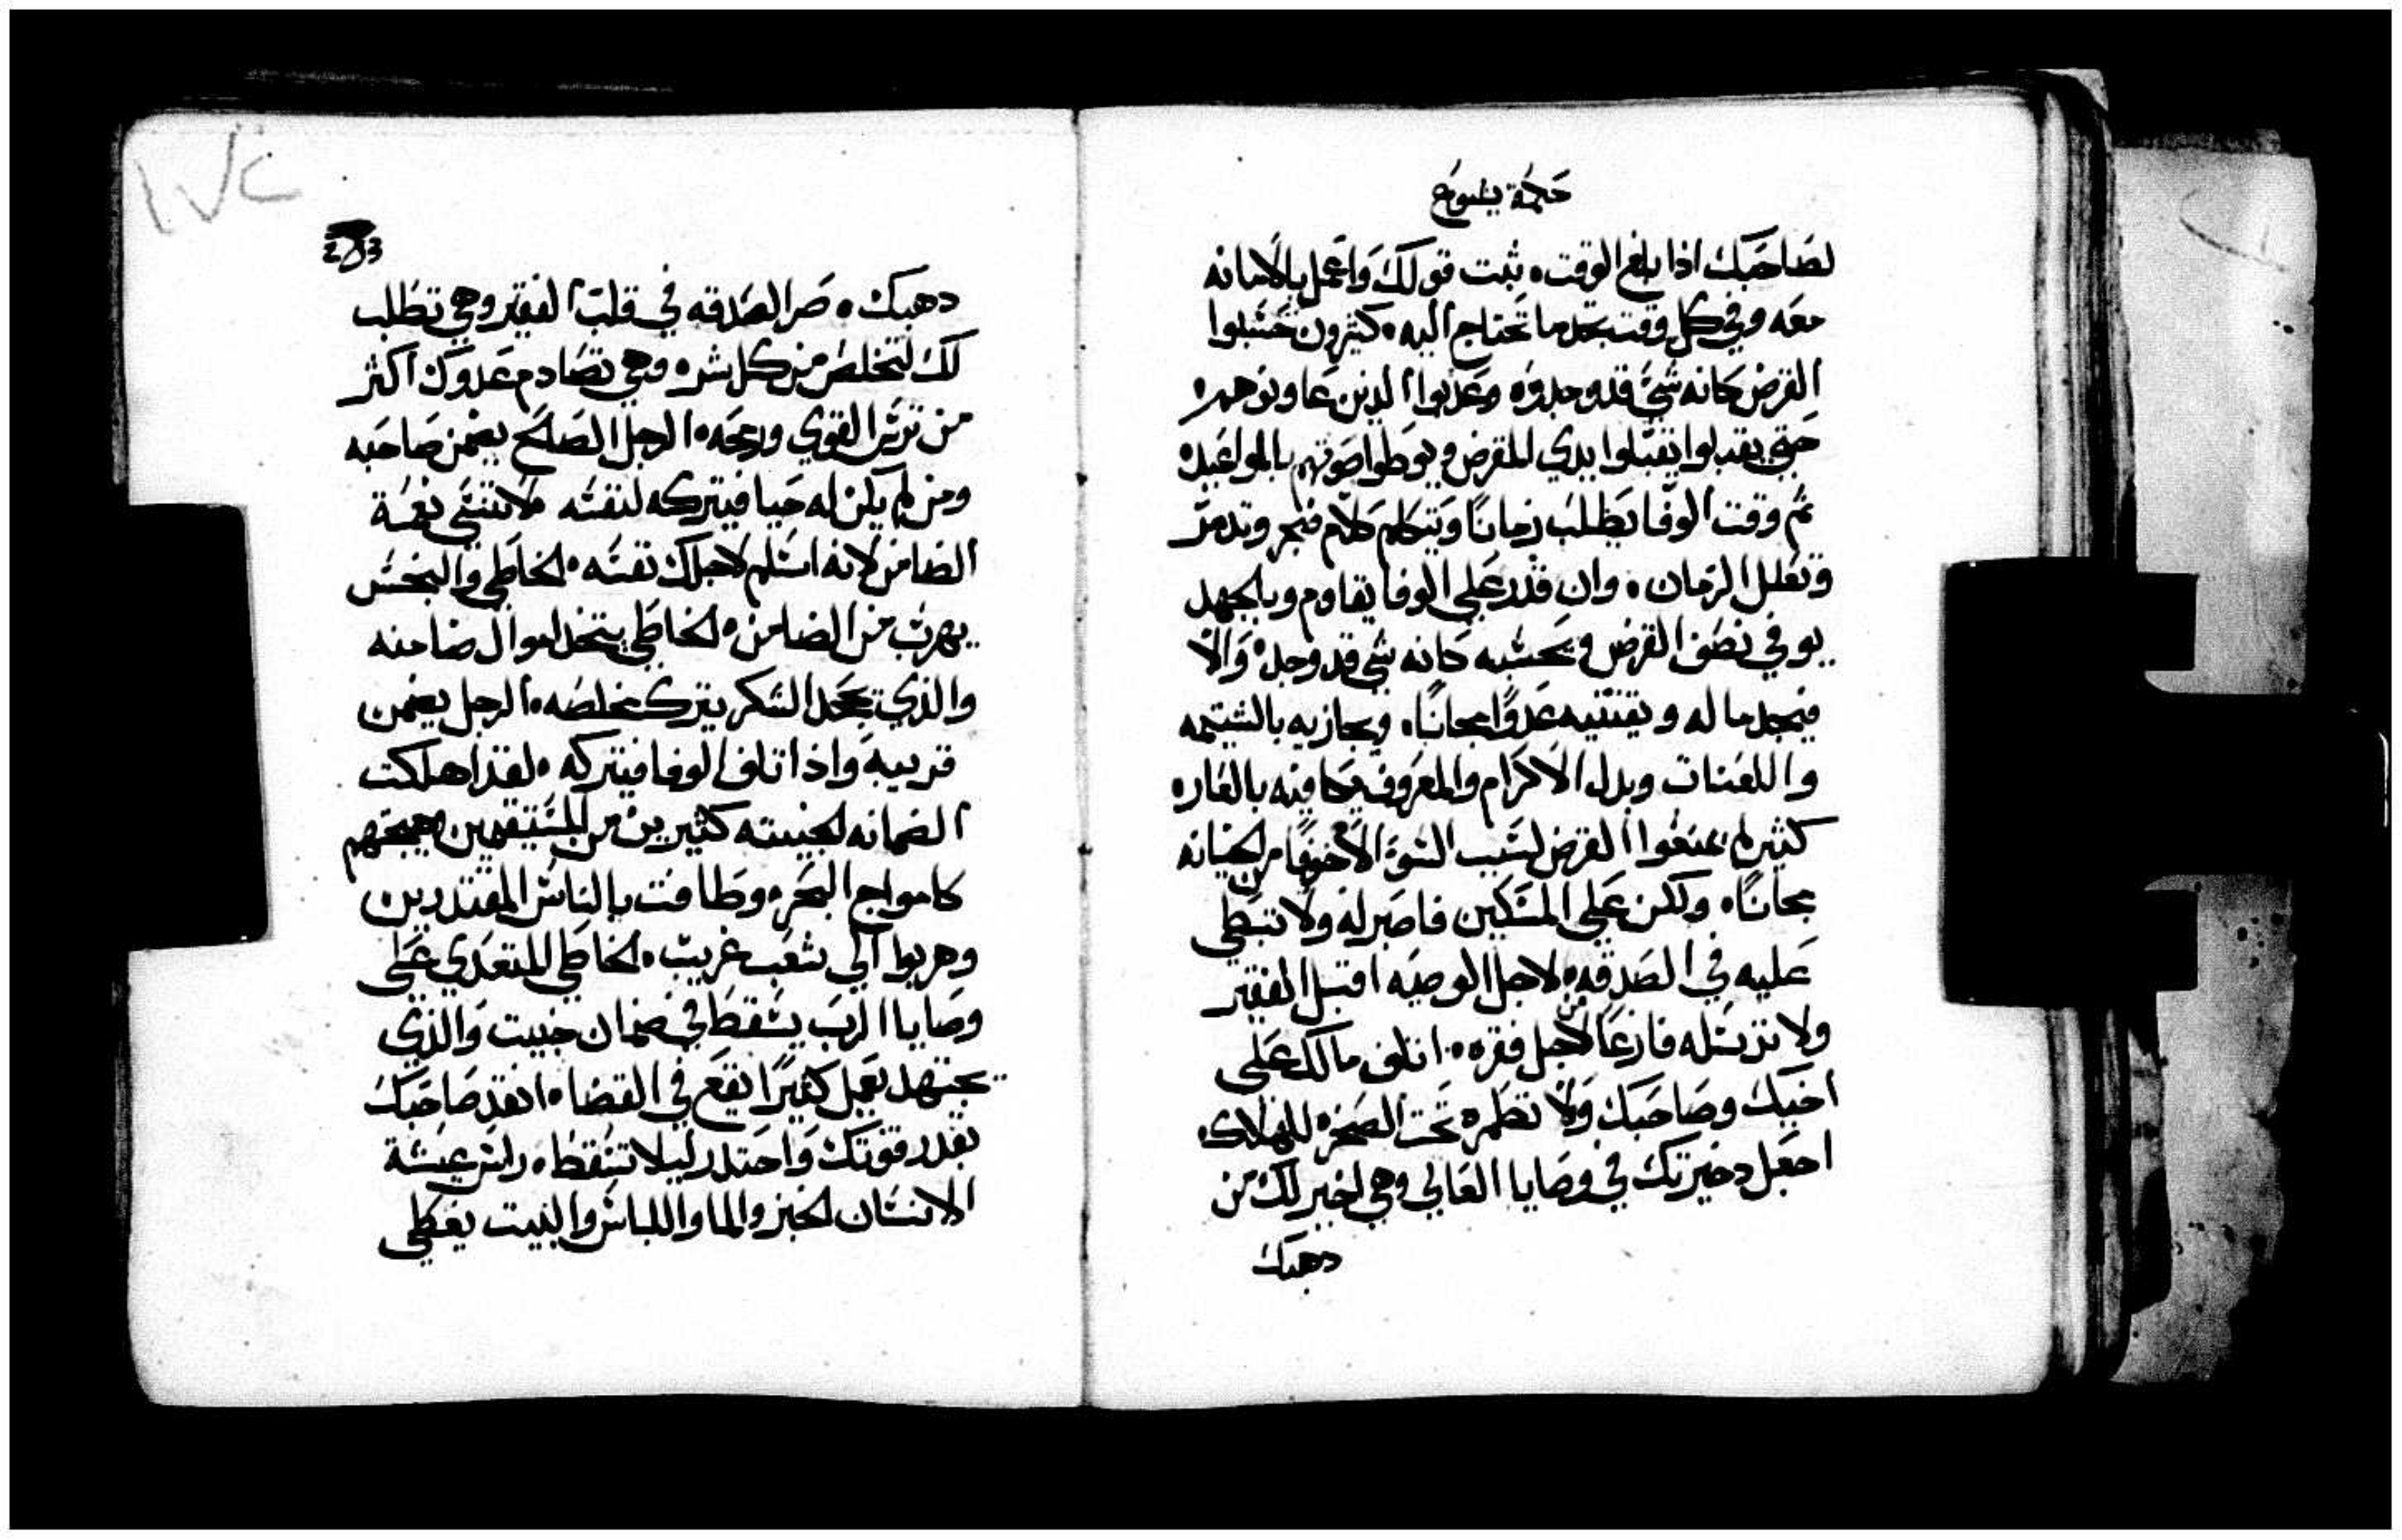 حكمة يشوع
لصاحبك اذا بلغ الوقت. ثبت قولك واعمل بالامانه
معه وفي كل وقت تجد ما تحتاج اليه. كثيرون حسبوا
القرض كانه شي قد وجدوه وعذبوا الدين عاونوهم.
حتى يقبلوا يقبلوا يدي المقرض ويوطوا صوتهم بالمواعيد.
ثم وقت الوفا يطلب زمانا ويتكلم كلام ضجر وتدمر
وتعلل الزمان. وان قدر على الوفا يقاوم وبالجهد
يوفي نصف القرض ويحسبه كانه شي قد وجده والا
فيجحد ماله ويقتنيه عدوا مجانا. ويجازيه بالشتيمه
واللعنات وبدل الاكرام والمعروف يكافيه بالعاره
كثير لم يمنعوا القرض لسبب السوء الا خوفا من الخيانه
مجانا. ولكن على المسكين فاصبر له ولا تبطي
عليه في الصدقه. لاجل الوصيه اقبل الفقير
ولا ترسله فارغا لاجل فقره. اتلف مالك على
اخيك وصاحبك ولا تطمره تحت الصخره للهلاك.
اجعل دخيرتك في وصايا العالي وهي اخير لك من
دهبك
١٧٢
283
دهبك. صر الصدقه في قلب الفقير وهي تطلب
لك لتخلص من كل شر. وهي تصادم عدوك اكثر
من ترس القوي ورمحه. الرجل الصالح يضمن صاحبه
ومن لم يكن له حيا فيتركه لنفسه. لا تنسى نعمة
الضامن لانه اسلم لاجلك نفسه. الخاطي والنجس
يهرب من الضامن. الخاطي يتخد اموال ضامنه
والذي يجحد الشكر يترك مخلصه. الرجل يضمن
قريبه واذا تلف الوفا فيتركه. لقد اهلكت
الضمانه الخبيته كثيرين من المستقيمين وهيجتهم
كامواج البحر. وطافت بالناس المقتدرين
وهربوا الى شعب غريب. الخاطي المتعدي على
وصايا الرب يسقط في ضمان خبيت والذي
يجتهد يعمل كثيرا يقع في القضا. انقد صاحبك
بقدر قوتك واحتدر ليلا تسقط. راس عيشة
الانسان الخبز والما واللباس والبيت يغطي